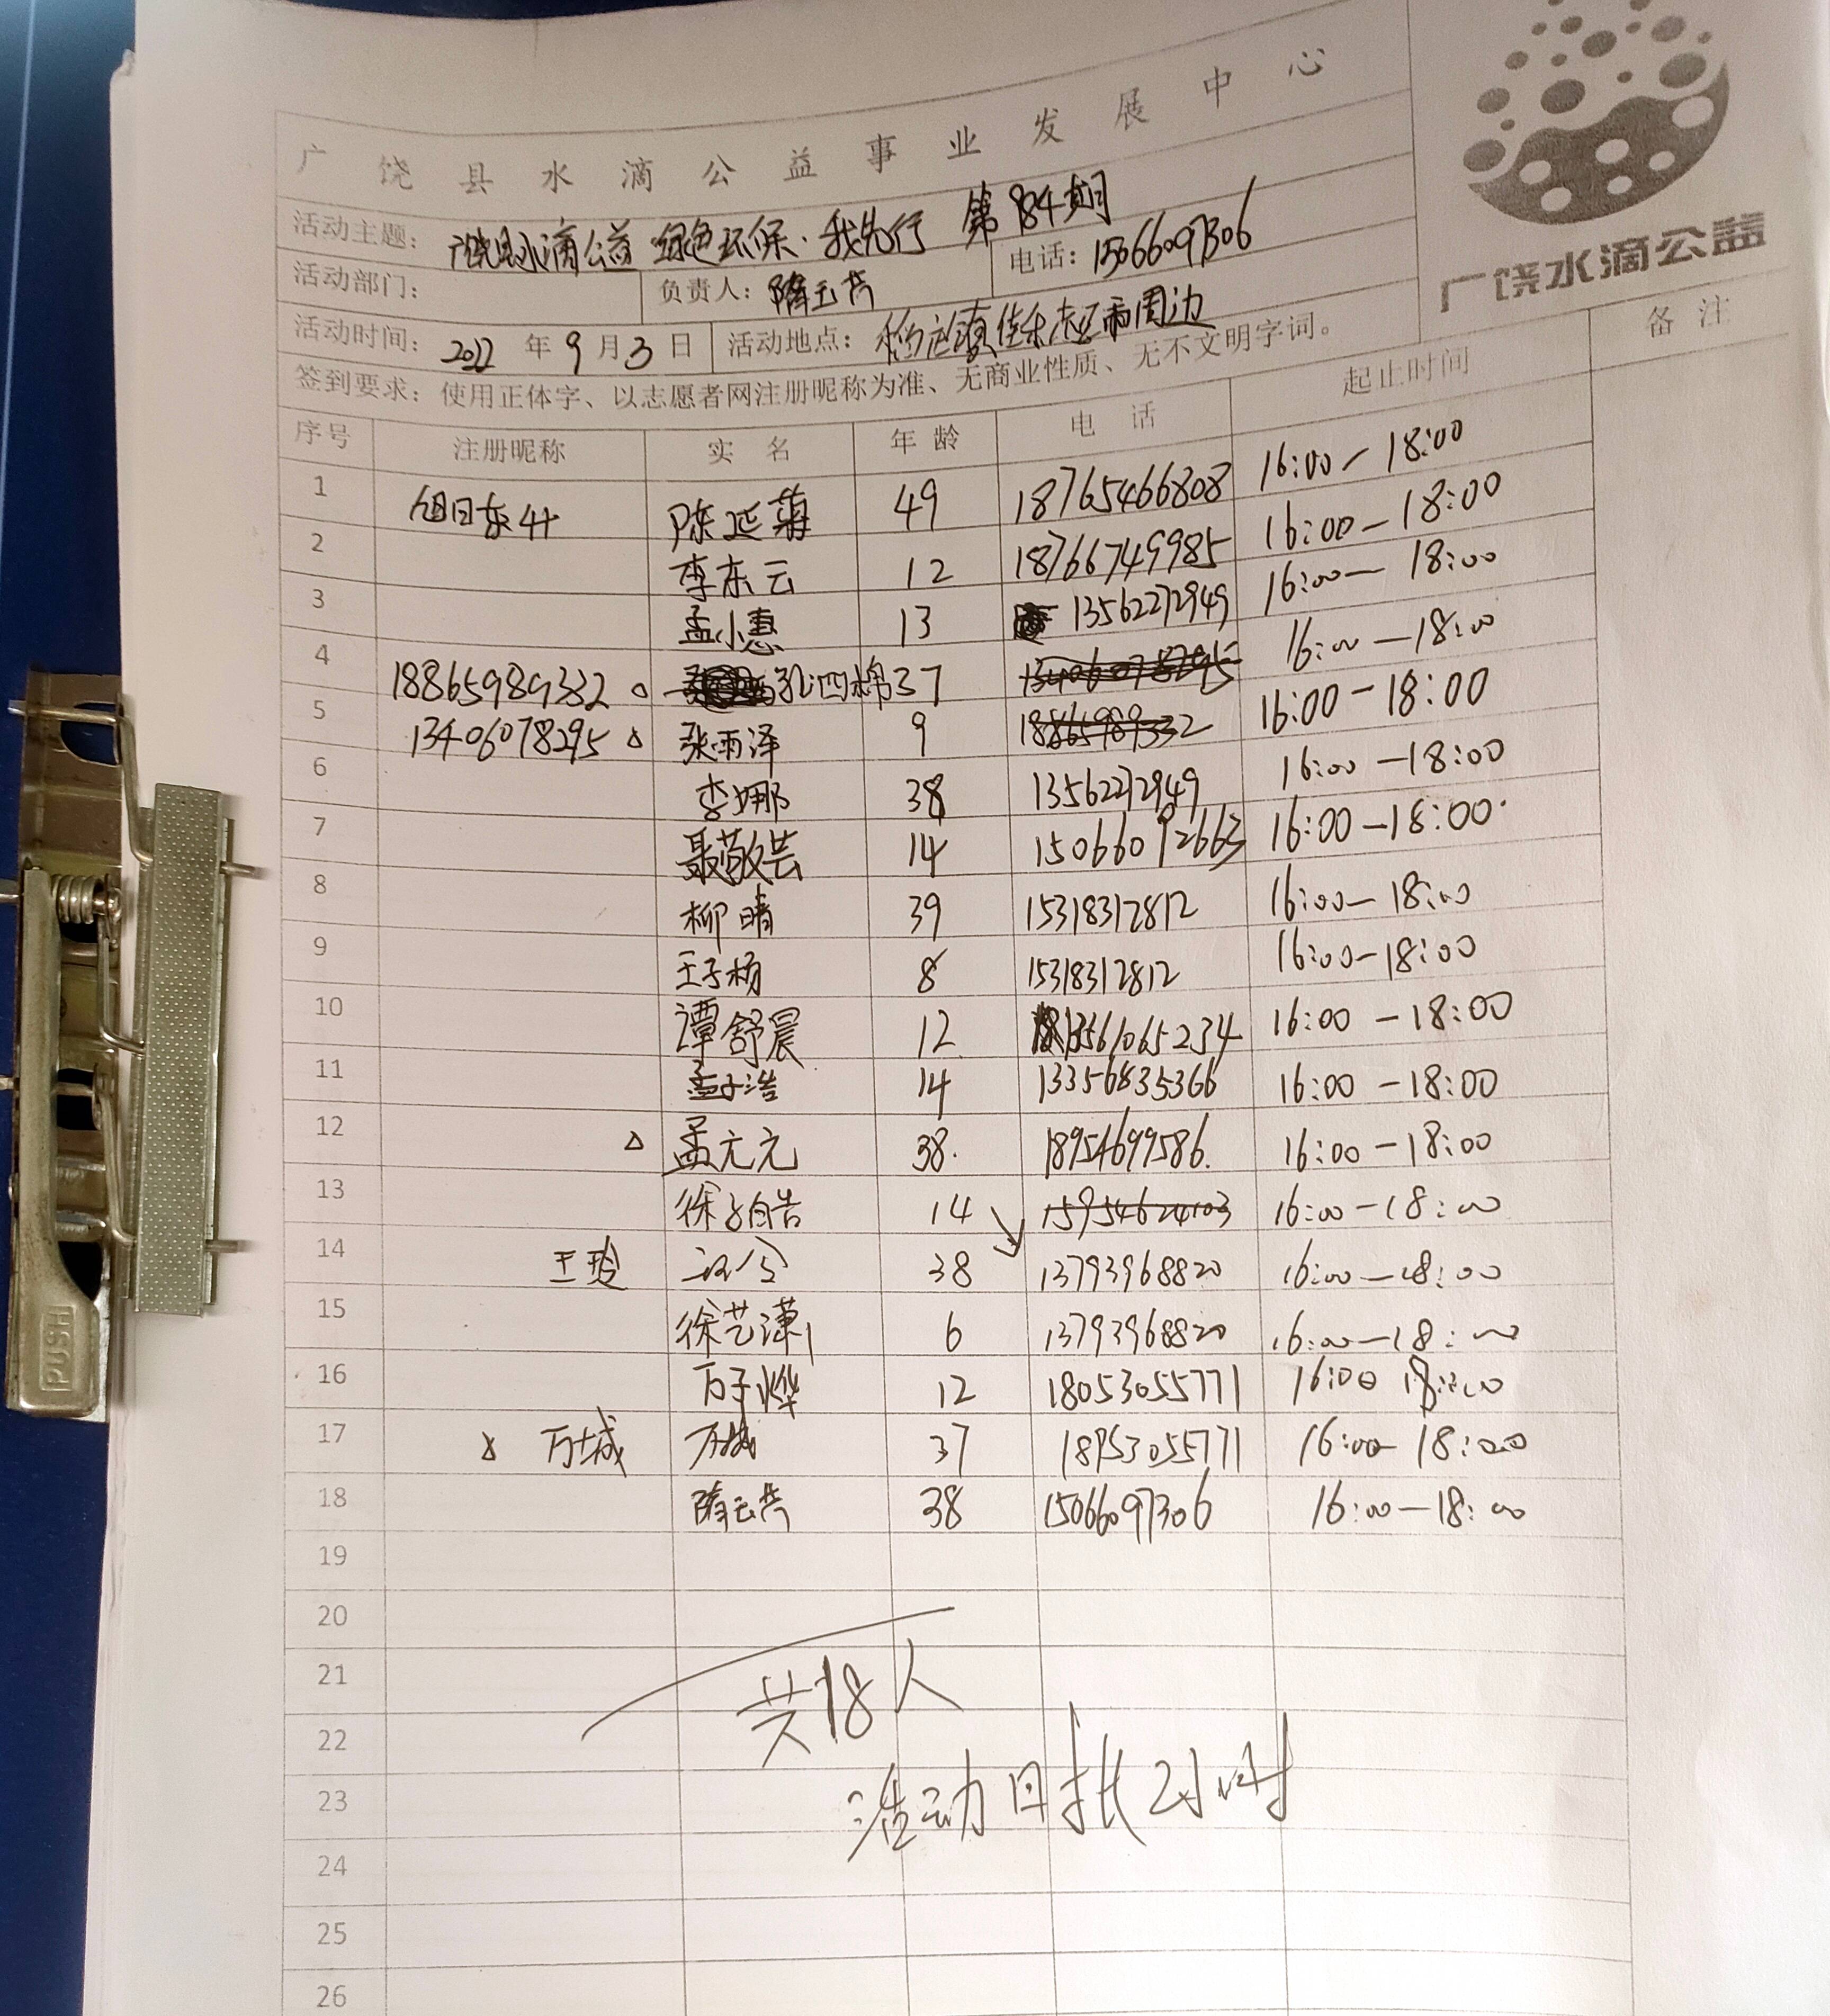 广饶县水滴公益事业发展中心
广饶水滴公益
活动主题：广饶县水滴公益 绿色环保·我先行 第184期
活动部门： 负责人：隋云芹 电话：15066097306
活动时间：2022年9月3日 活动地点：佳乐志豆雨周边
签到要求：使用正体字、以志愿者网注册昵称为准、无商业性质、无不文明字词。
序号 注册昵称 实名 年龄 电话 起止时间 备注
1 旭日东升 陈延菊 49 18765466808 16:00-18:00
2 李东云 12 18766749985 16:00-18:00
3 孟小惠 13 13562272949 16:00-18:00
4 18865989332 孔四棉 37 13406078295 16:00-18:00
5 13406078295 张雨泽 9 18865989332 16:00-18:00
6 李娜 38 13562272949 16:00-18:00
7 聂敬芸 14 15066092663 16:00-18:00
8 柳晴 39 15318312812 16:00-18:00
9 王子杨 8 15318312812 16:00-18:00
10 谭舒晨 12 13561065234 16:00-18:00
11 孟子浩 14 13356835366 16:00-18:00
12 孟元元 38. 18954699586. 16:00-18:00
13 徐子皓 14 15954624103 16:00-18:00
14 王玲 38 13793968820 16:00-18:00
15 徐艺潇 6 13793968820 16:00-18:00
16 万子烨 12 18053055771 16:00 18:00
17 万城 万城 37 18953055771 16:00-18:00
18 隋云芹 38 15066097306 16:00-18:00
19
20
21
22
23
24
25
26
共18人
活动时长2小时
PUSH